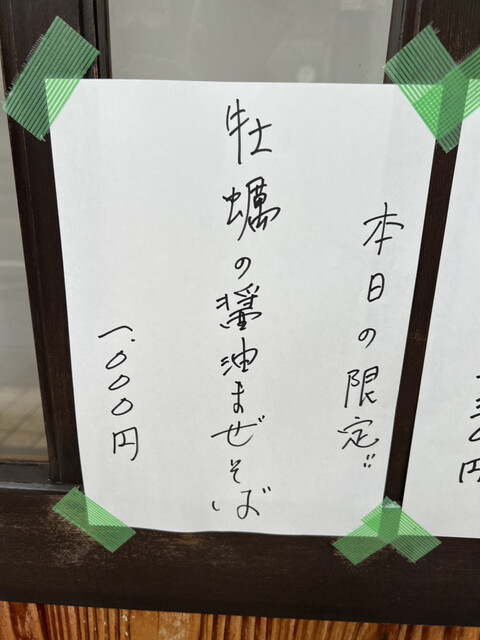 本日の限定!!
牡蠣の醤油まぜそば
1.000円